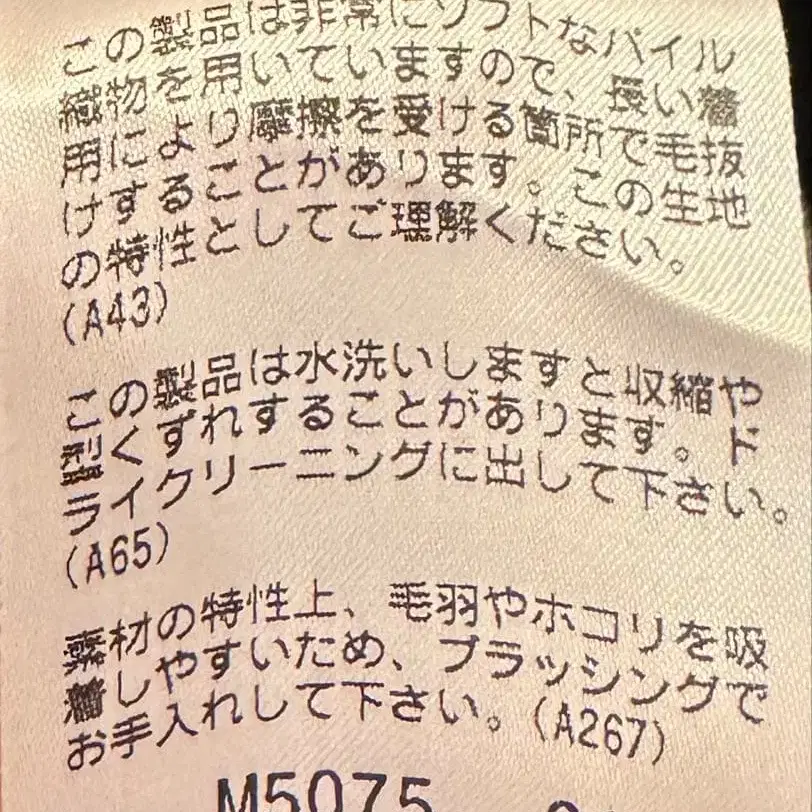 この製品は非常にソフトなパイル
織物を用いていますので、長い着
用により摩擦を受ける箇所で毛抜
けすることがあります。この生地
の特性としてご理解ください。
(A43)
この製品は水洗いしますと収縮や
型くずれすることがあります。ド
ライクリーニングに出して下さい。
(A65)
素材の特性上、毛羽やホコリを吸
着しやすいため、ブラッシングで
お手入れして下さい。(A267)
M5075